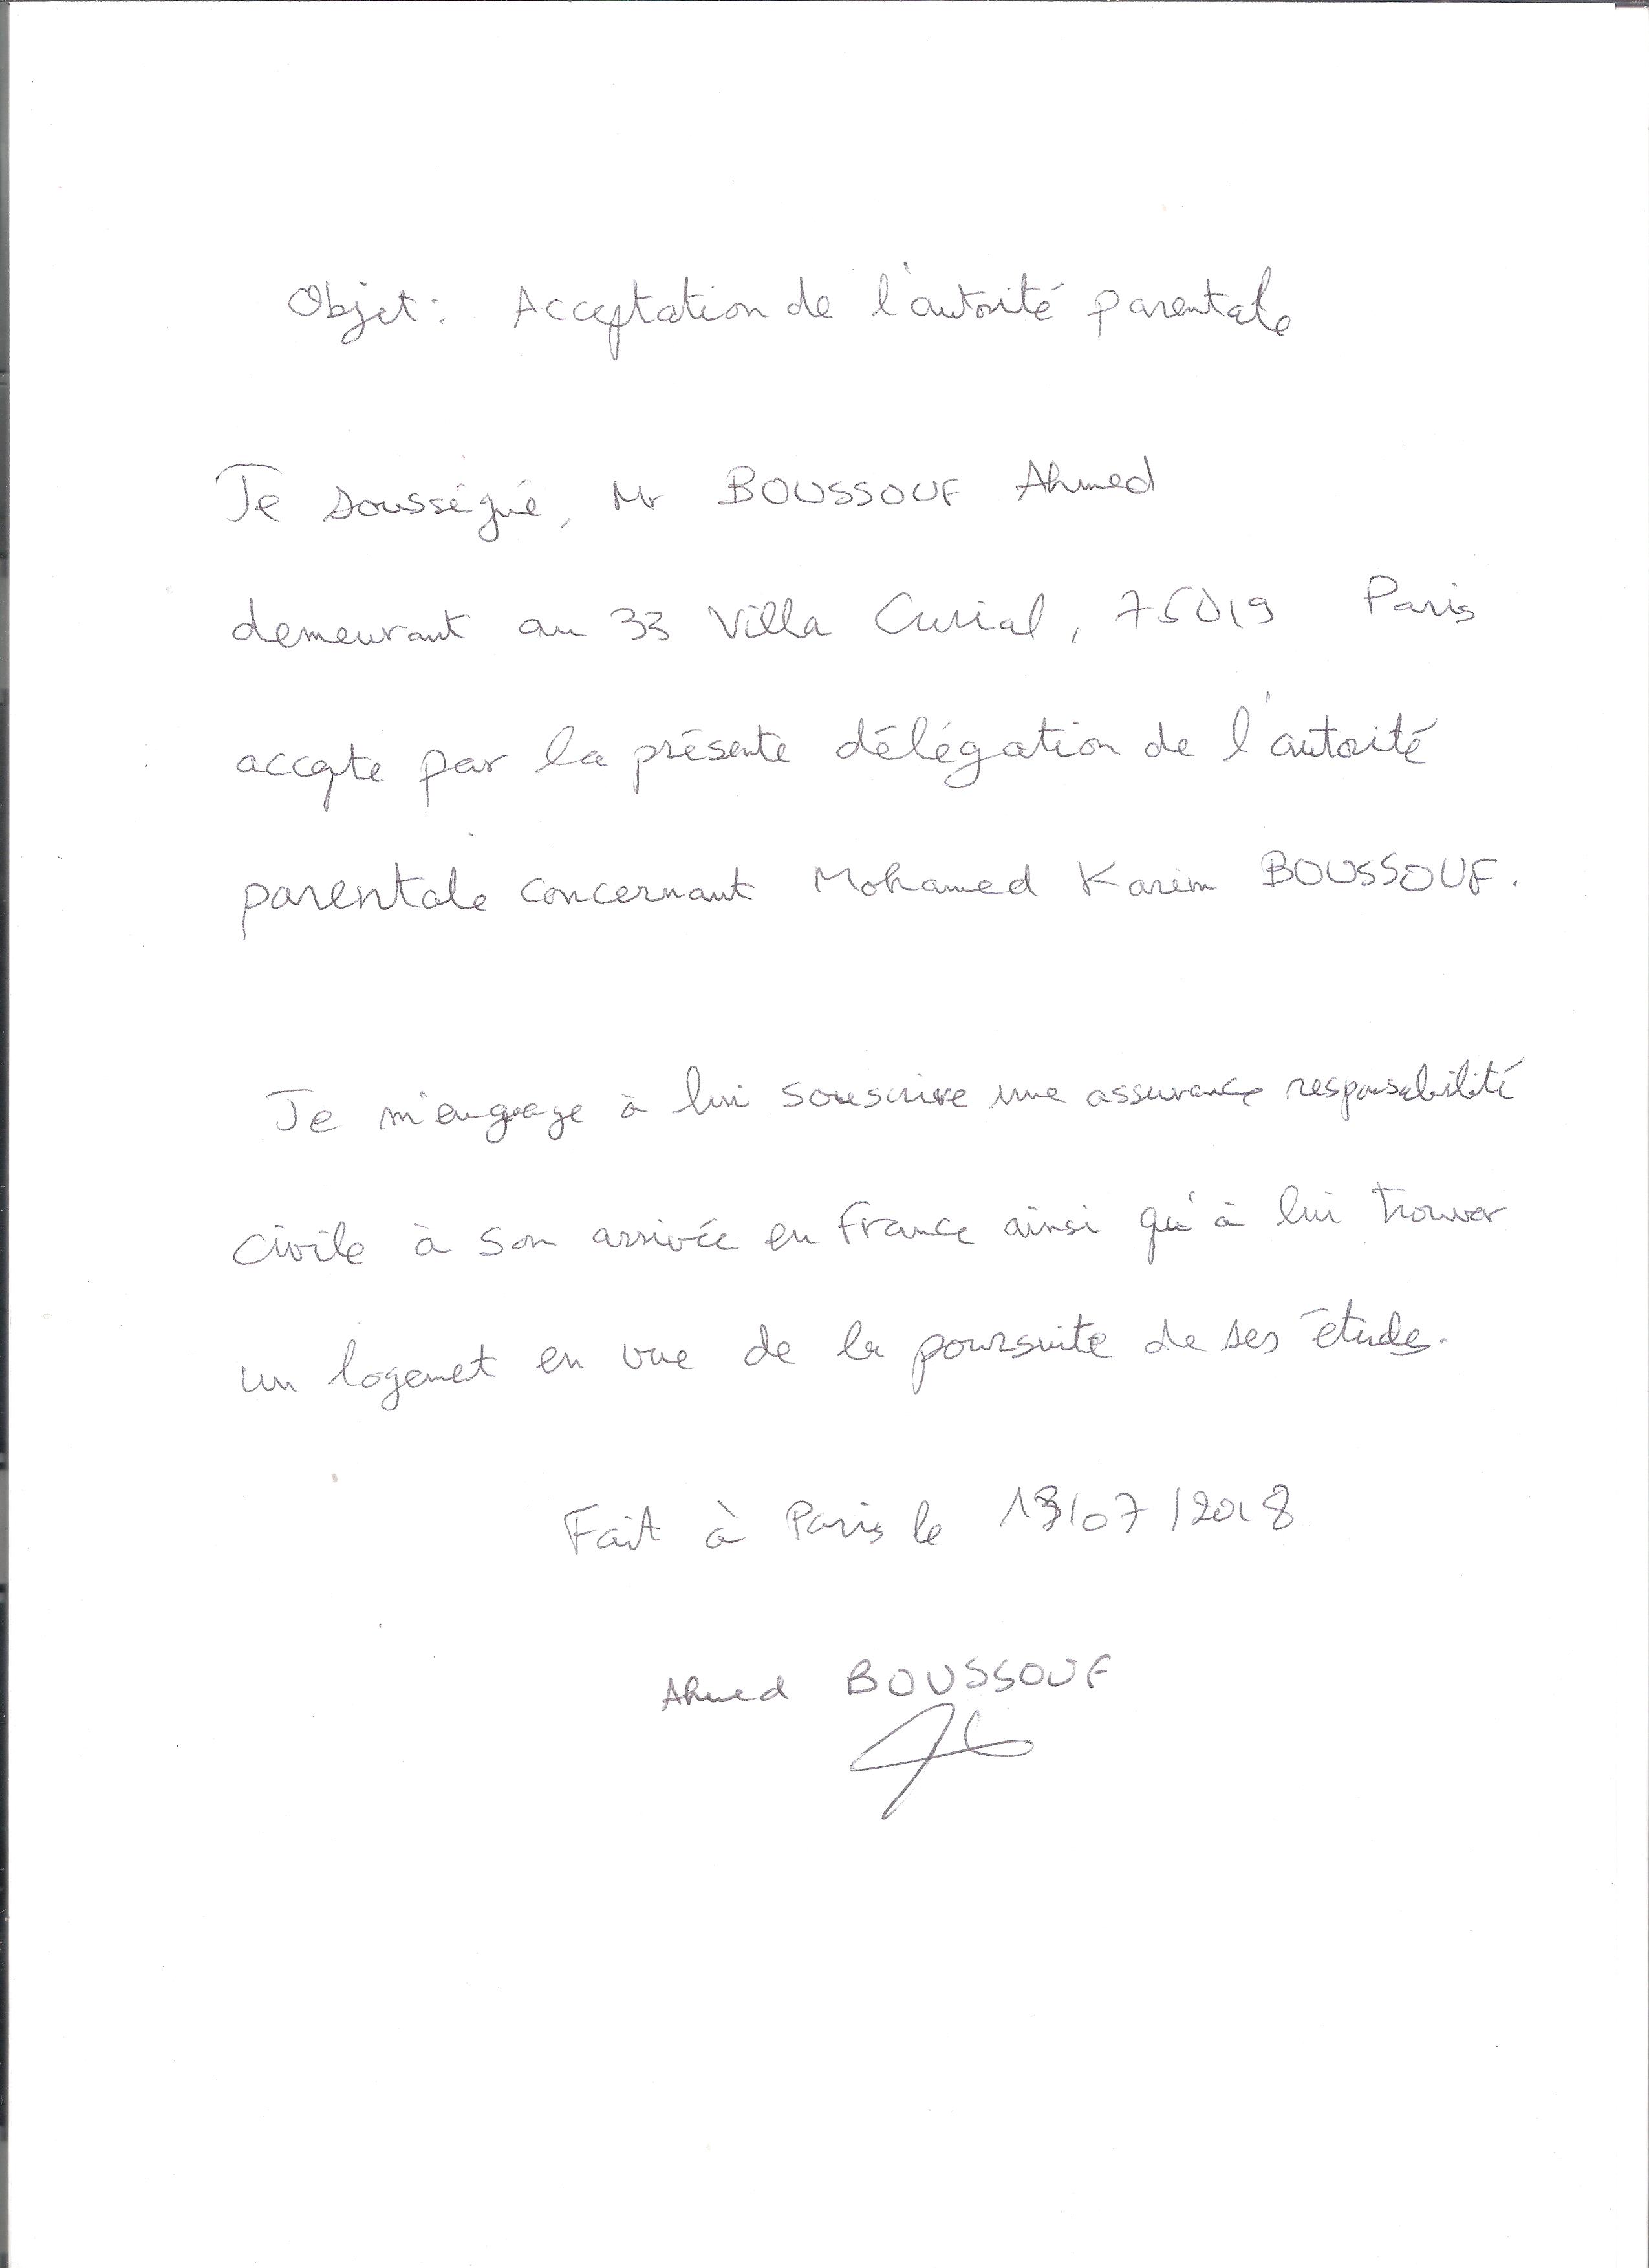 Objet : Acceptation de l'autorité parentale
Je sousségné, Mr BOUSSOUF Ahmed
demeurant au 33 Villa Curial, 75019 Paris
accepte par la présente délégation de l'autorité
parentale concernant Mohamed Karim BOUSSOUF.
Je m'engage à lui souscrire une assurance responsabilité
civile à son arrivée en France ainsi qu'à lui trouver
un logement en vue de la poursuite de ses études.
Fait à Paris le 13/07/2018
Ahmed BOUSSOUF